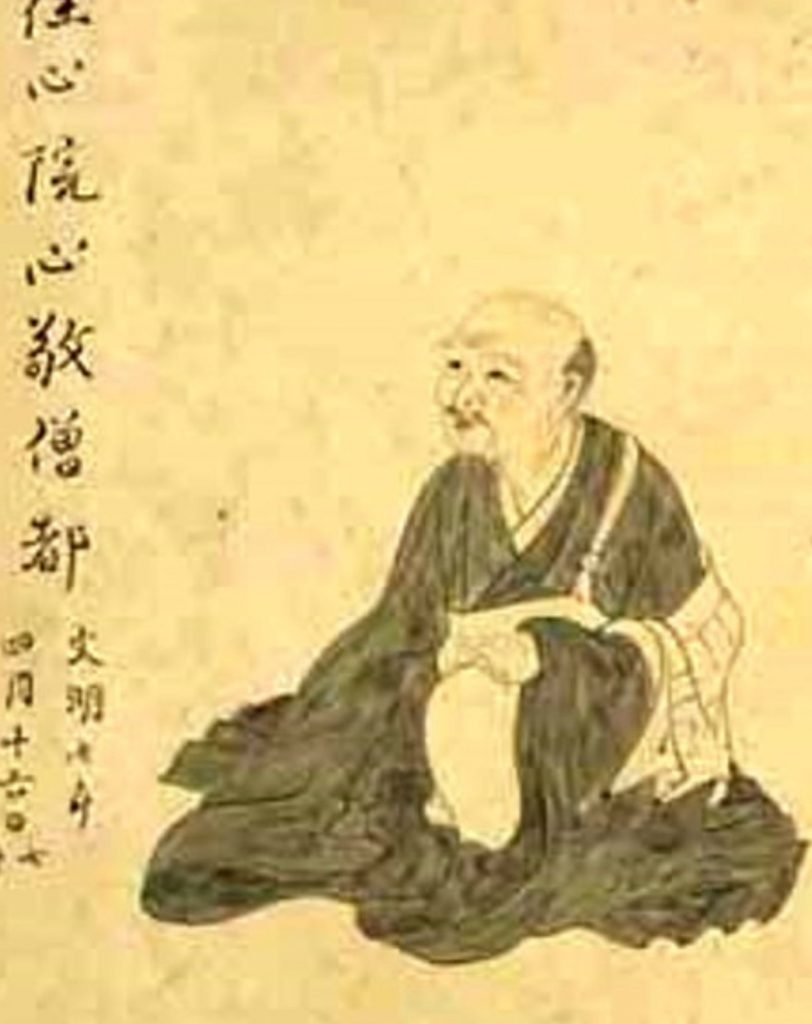 住心院心敬僧都
文明七年
四月十六日